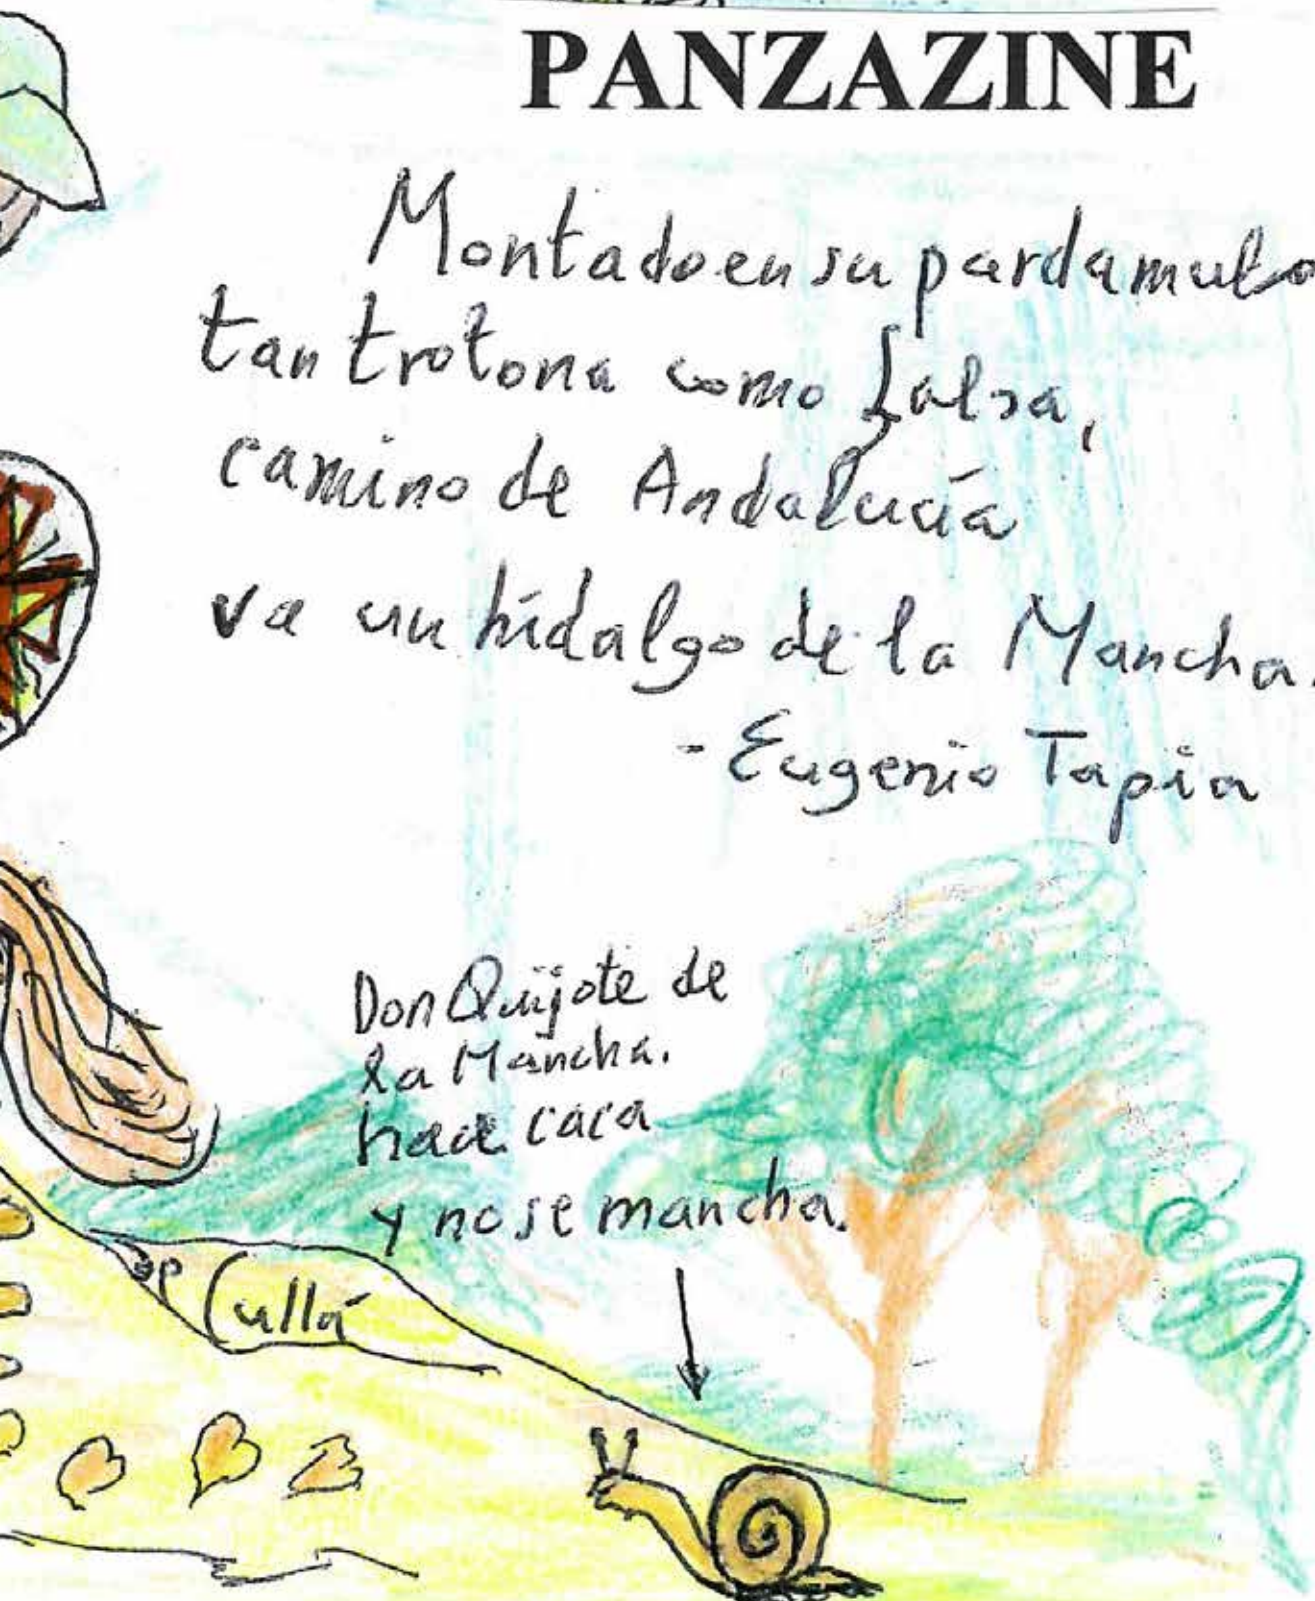 PANZAZINE
Montado en su parda mula
tan trotona como falsa,
camino de Andalucía
va un hidalgo de la Mancha.
- Eugenio Tapia
Don Quijote de
la Mancha.
hace caca
y no se mancha.
Cullá